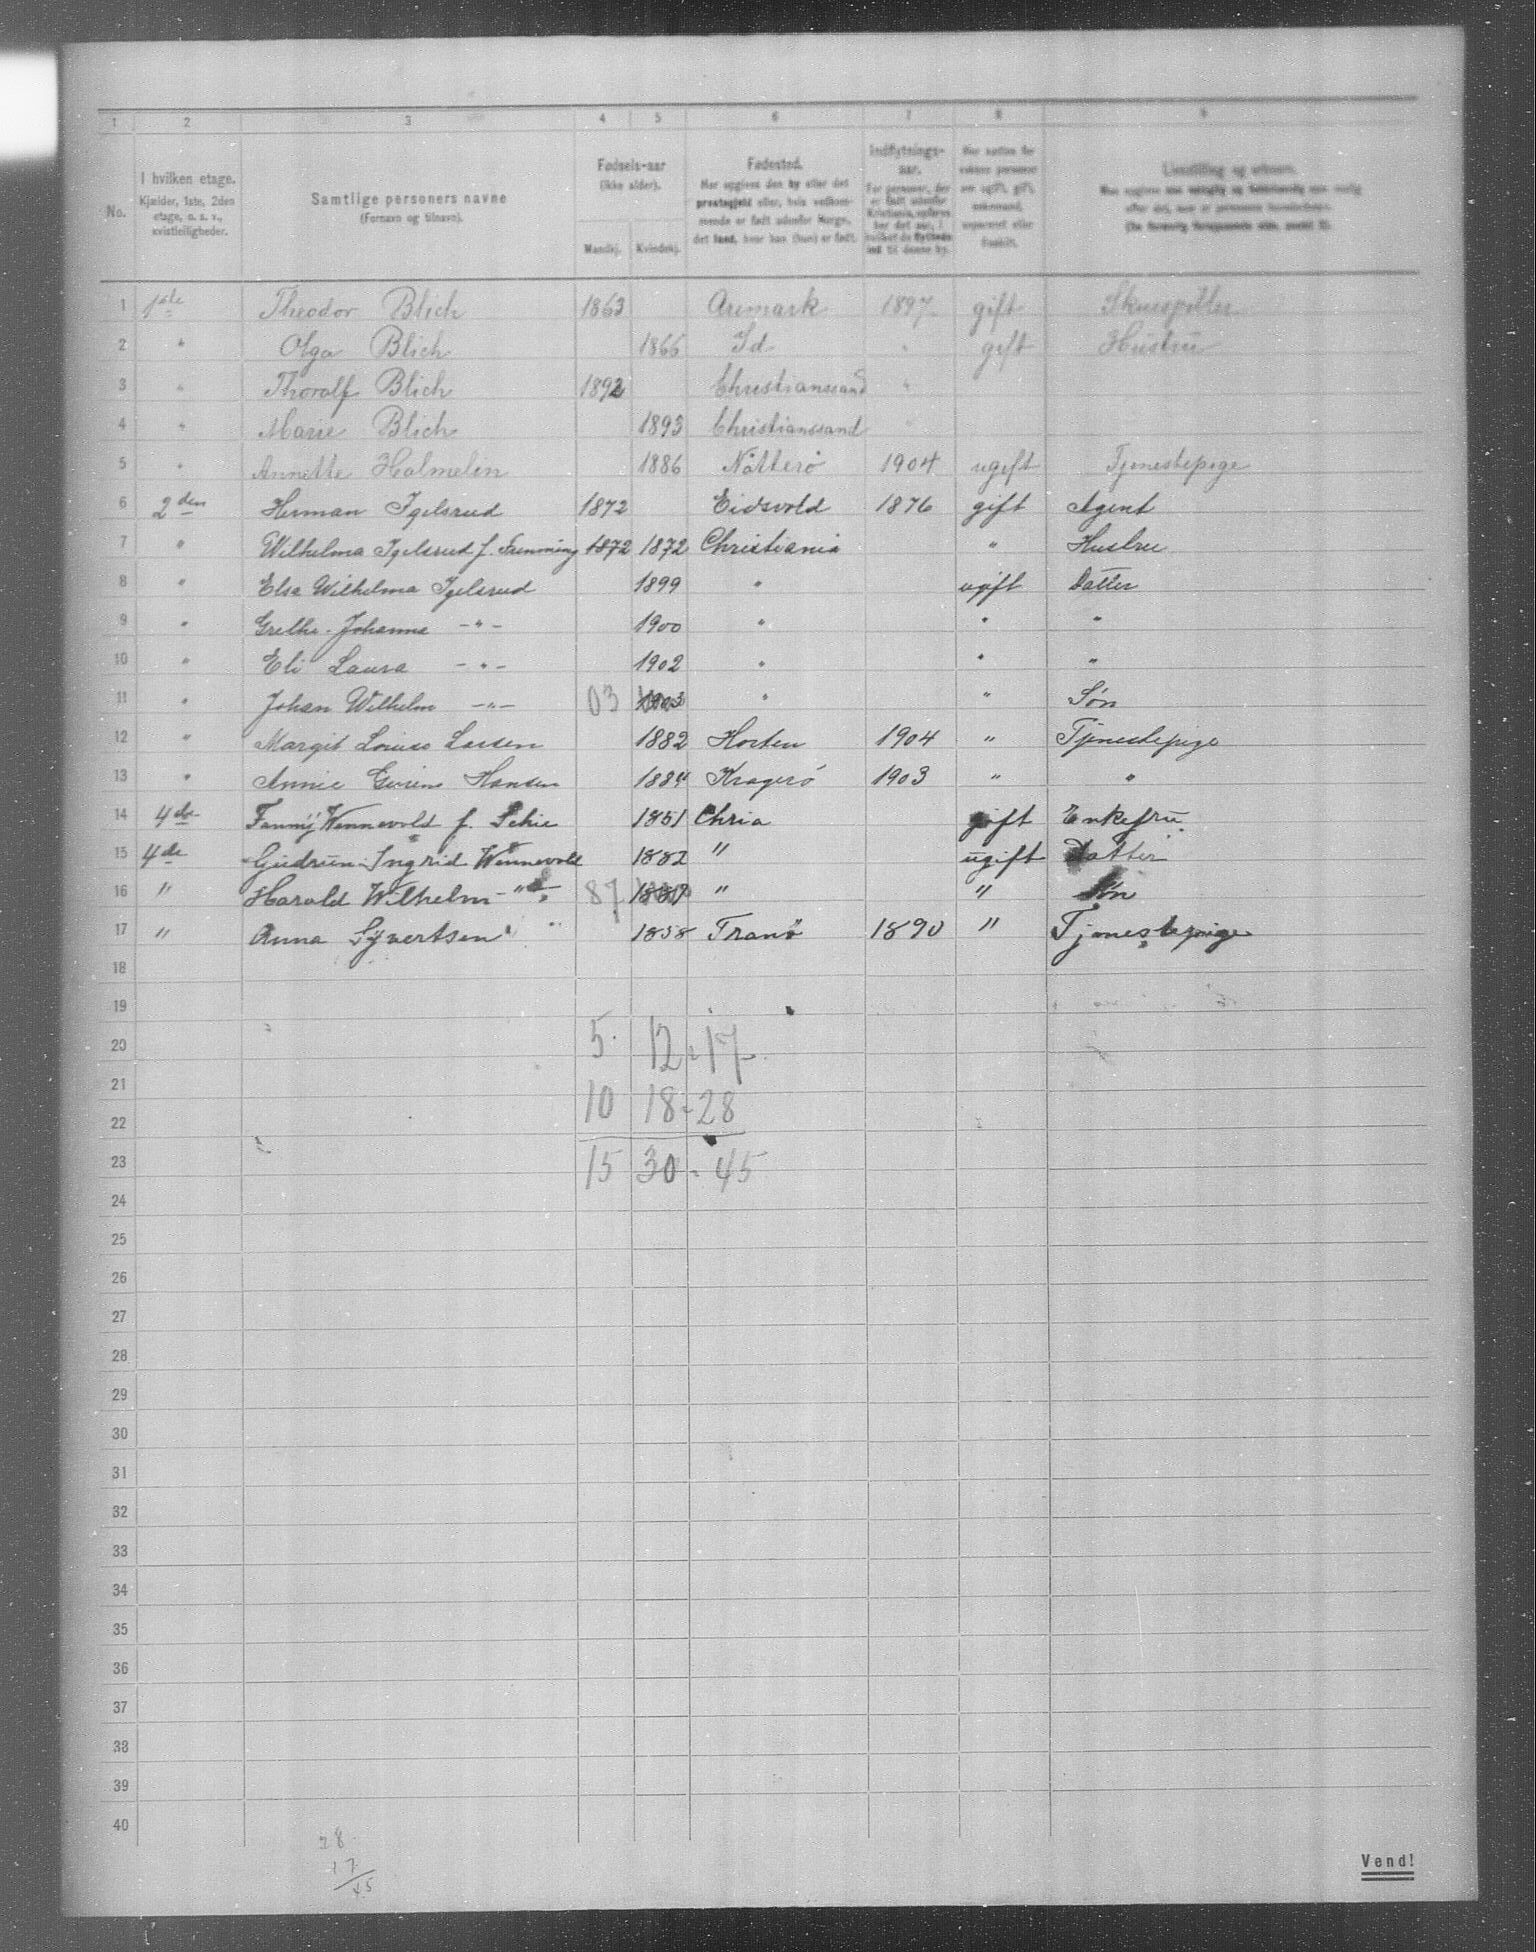 1 2 3 4 5 6 7 8 9
No. I hvilken etage. Kjælder, 1ste, 2den etage, o. s. v., kvistleiligheder. Samtlige personers navne (Fornavn og tilnavn). Fødsels-aar (ikke alder). Mandkj. Kvindekj. Fødested. Her opgives den by eller det præstegjeld eller, hvis vedkommende er født udenfor Norge, det land, hvor han (hun) er født. Indflytnings-aar. For personer, der er født udenfor Kristiania, opføres her det aar, i hvilket de flyttede ind til denne by.
1 1ste Theodor Blich 1863 Aremark 1897 gift Skuespiller
2 " Olga Blich 1866 Id " gift Hustru
3 " Thorolf Blich 1892 Christianssand "
4 " Marie Blich 1893 Christianssand "
5 " Annette Holmelin 1886 Nötterö 1904 ugift Tjenestepige
6 2den Herman Igelsrud 1872 Eidsvold 1876 gift Agent
7 " Wilhelma Igelsrud f. Fremming 1872 1872 Christiania " Hustru
8 " Elsa Wilhelma Igelsrud 1899 " ugift Datter
9 " Grethe Johanne -"- 1900 " " "
10 " Eli Laura -"- 1902 " " "
11 " Johan Wilhelm -"- 03 1903 " " Søn
12 " Margit Lovise Larsen 1882 Horten 1904 " Tjenestepige
13 " Annie Hansen 1884 Kragerö 1903 " "
14 4de Fanny Wennevold f. Schie 1851 Chria gift Enkefru
15 4de Gudrun Ingrid Wennevold 1882 " ugift Datter
16 " Harald Wilhelm -"- 87 1887 " " Søn
17 " Anna Syvertsen 1858 Tranö 1890 " Tjenestepige
18
19
20 5 12 - 17
21 10 18 - 28
22
23 15 30 - 45
24
25
26
27
28
29
30
31
32
33
34
35
36
37
38
39
40
28
17
45
Vend!